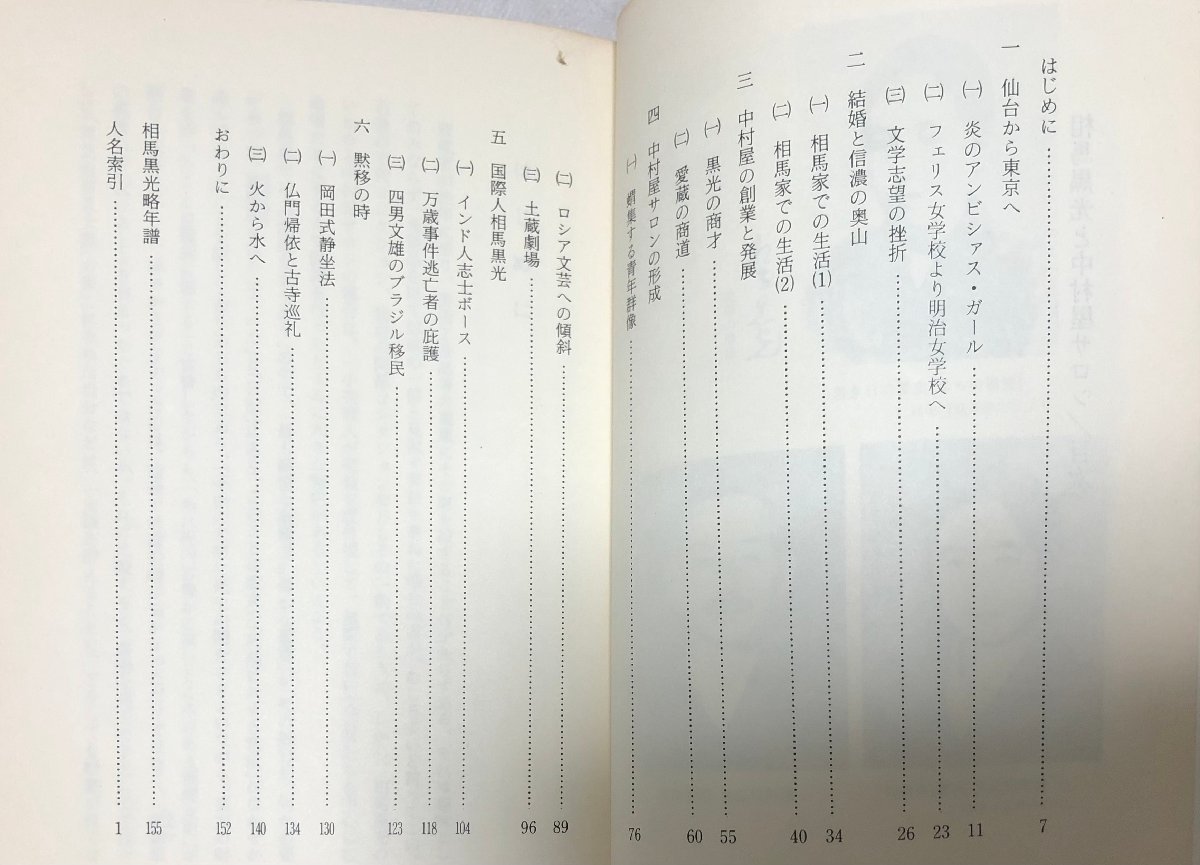 はじめに……………………7
一　仙台から東京へ
㈠　炎のアンビシァス・ガール……………………11
㈡　フェリス女学校より明治女学校へ……………………23
㈢　文学志望の挫折……………………26
二　結婚と信濃の奥山
㈠　相馬家での生活(1)……………………34
㈡　相馬家での生活(2)……………………40
三　中村屋の創業と発展
㈠　黒光の商才……………………55
㈡　愛蔵の商道……………………60
四　中村屋サロンの形成
㈠　蝟集する青年群像……………………76
㈡　ロシア文芸への傾斜……………………89
㈢　土蔵劇場……………………96
五　国際人相馬黒光
㈠　インド人志士ボース……………………104
㈡　万歳事件逃亡者の庇護……………………118
㈢　四男文雄のブラジル移民……………………123
六　黙移の時
㈠　岡田式静坐法……………………130
㈡　仏門帰依と古寺巡礼……………………134
㈢　火から水へ……………………140
おわりに……………………152
相馬黒光略年譜……………………155
人名索引……………………1